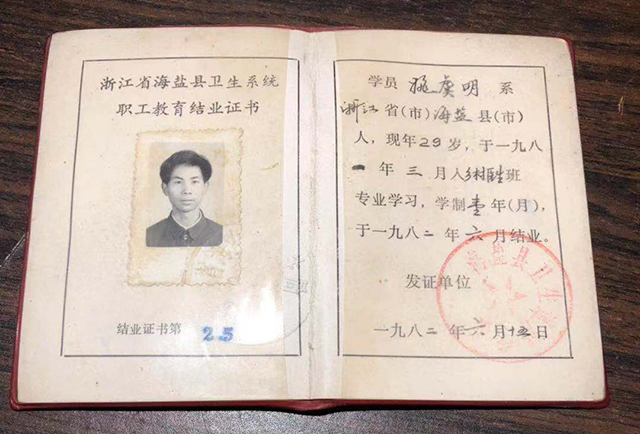 浙江省海盐县卫生系统
职工教育结业证书
结业证书第 25
学员 明 系
浙江省(市)海盐县(市)
人，现年29岁，于一九八
一年三月入 班
专业学习，学制壹年(月)，
于一九八二年六月结业。
发证单位
一九八二年六月十五日
海盐县卫生